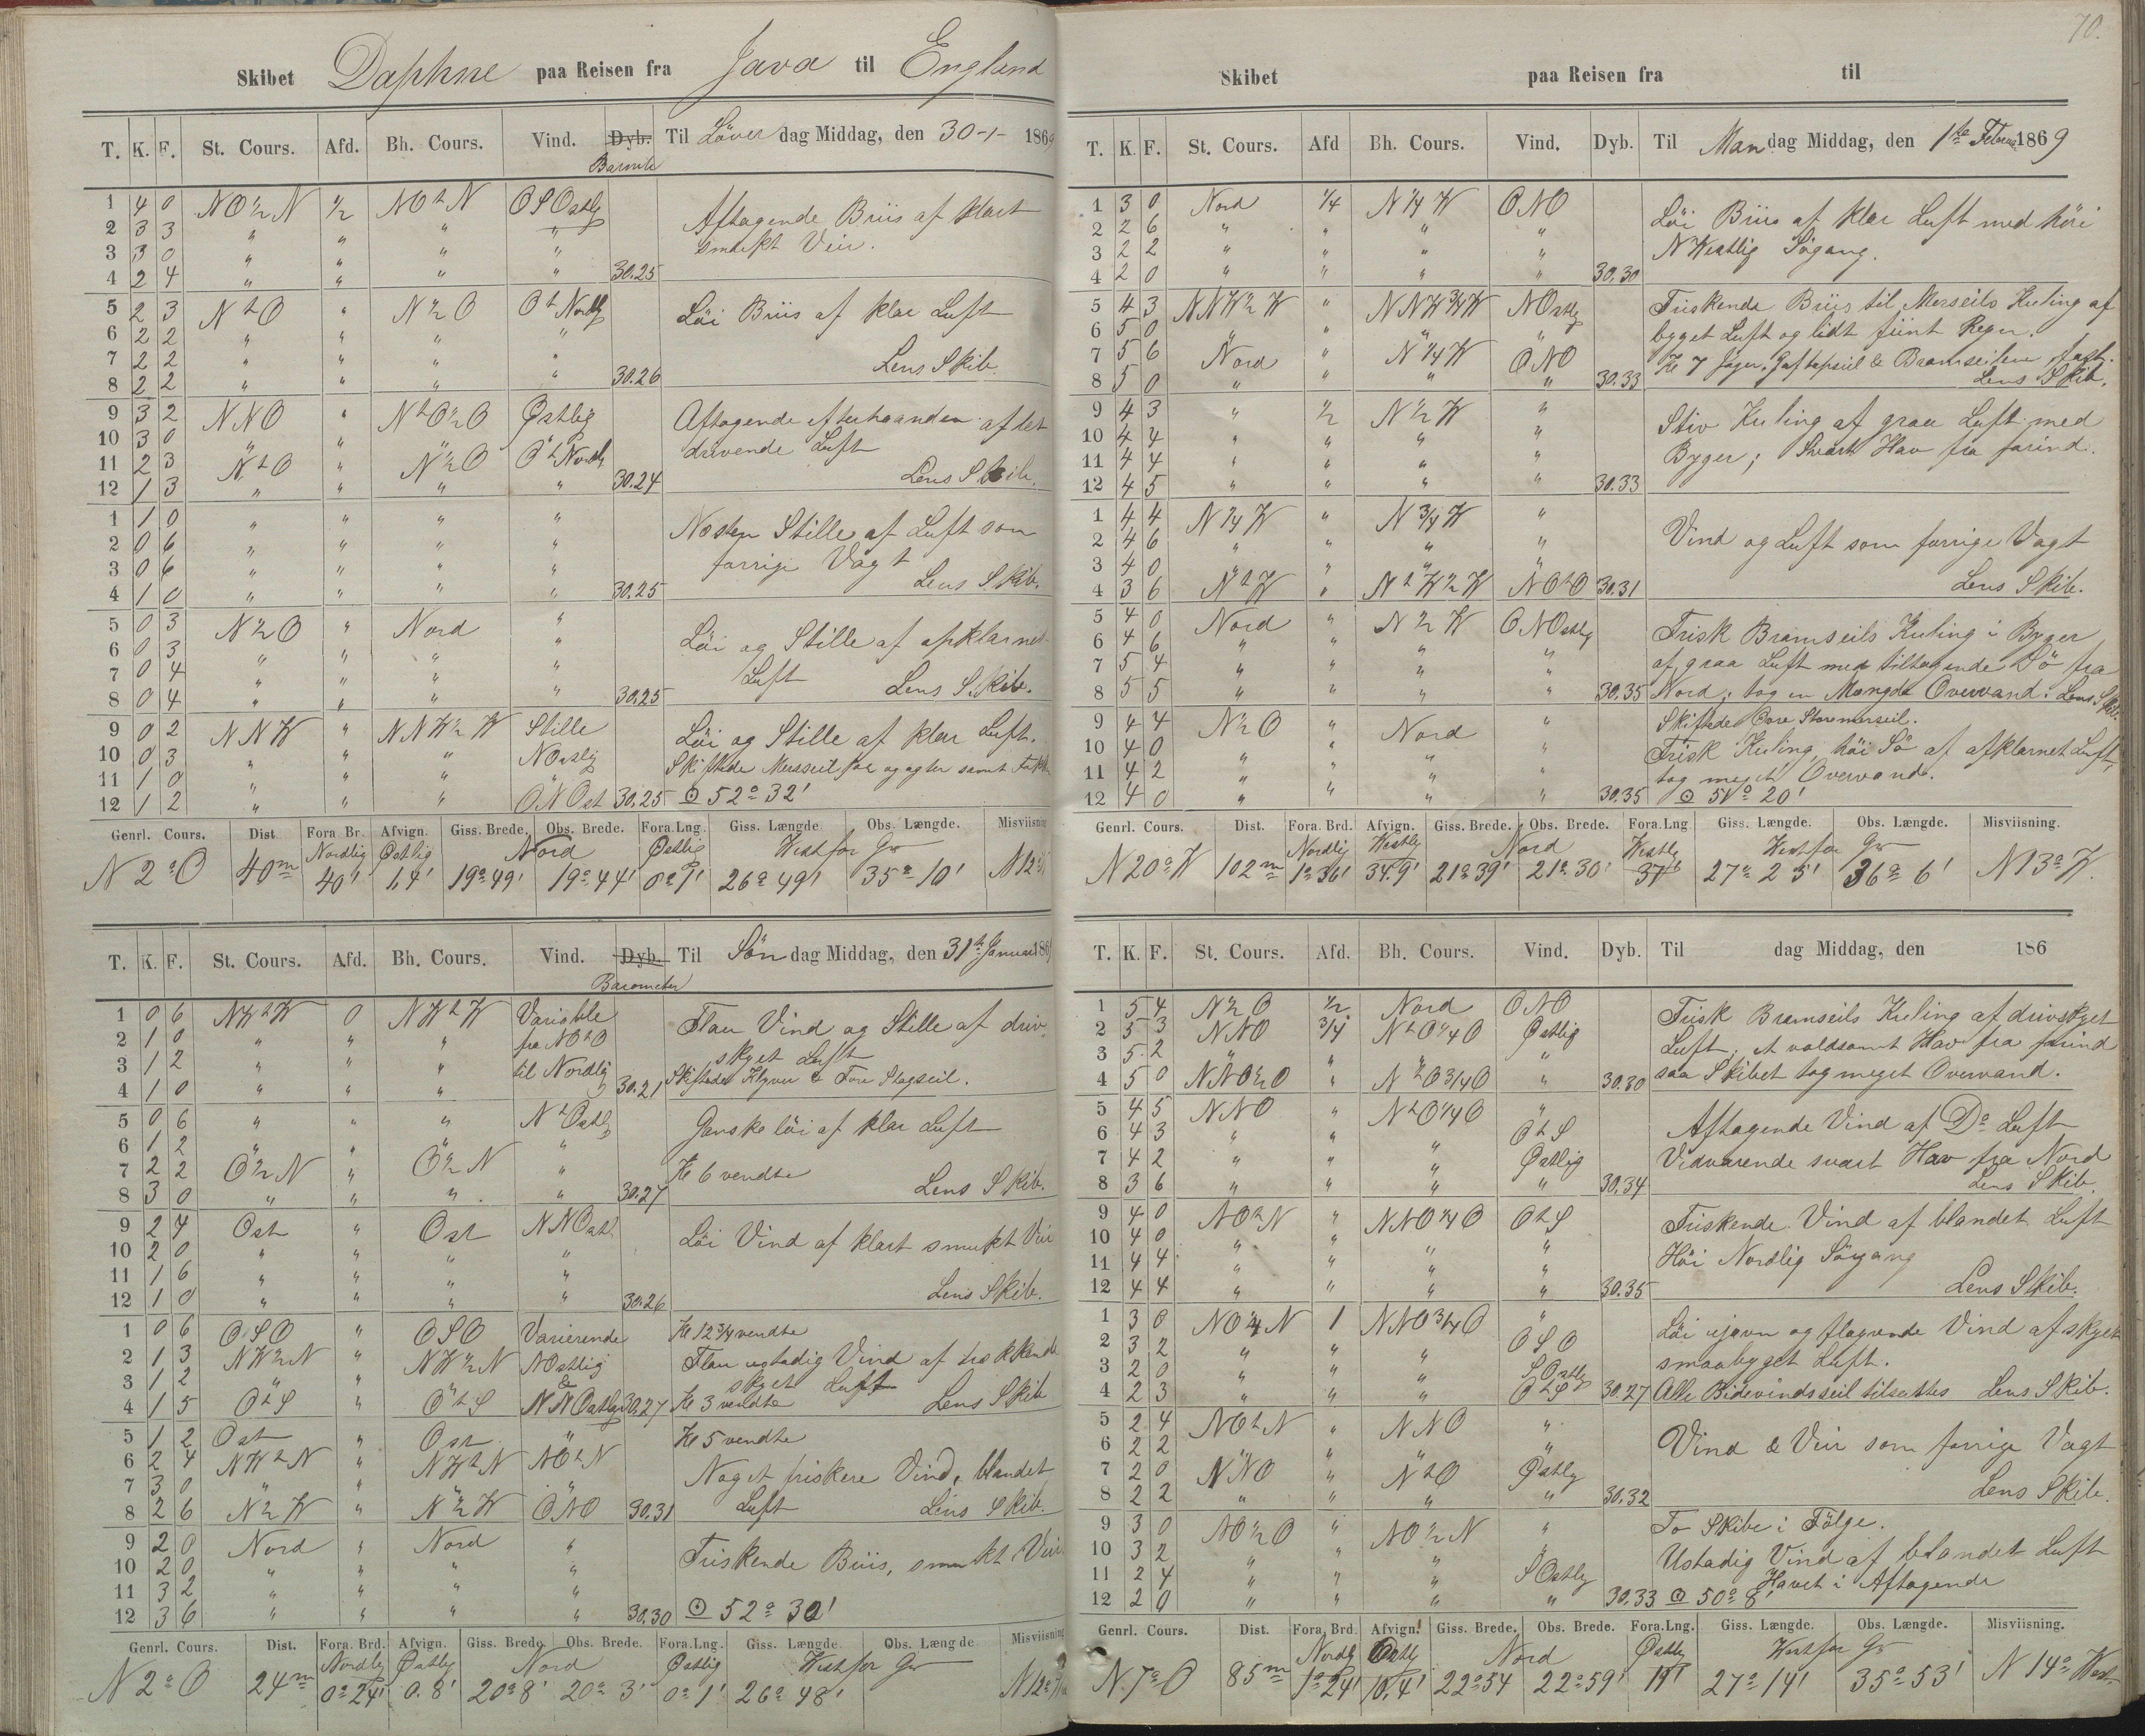 70.
Skibet Daphne paa Reisen fra Java til England
T. K. F. St. Cours. Afd. Bh. Cours. Vind. Dyb. Til Löver dag Middag, den 30-1- 1869
Baromete
1 4 0 NO½N ½ NOtN OSOstlig
2 3 3 " " " "
3 3 0 " " " "
4 2 4 " " " " 30.25
Aftagende Briis af klart
smukt Veir.
5 2 3 NtO " N½O OtNordlig
6 2 2 " " " "
7 2 2 " " " "
8 2 2 " " " " 30.26
Löi Briis af klar Luft
Lens Skib.
9 3 2 NNO " NtO½O Østlig
10 3 0 " " " "
11 2 3 NtO " N½O OtNordl
12 1 3 " " " " 30.24
Aftagende efterhaanden af let
drivende Luft
Lens Skib.
1 1 0 " " " "
2 0 6 " " " "
3 0 6 " " " "
4 1 0 " " " " 30.25
Næsten Stille af Luft som
forrige Vagt
Lens Skib.
5 0 3 N½O " Nord "
6 0 3 " " " "
7 0 4 " " " "
8 0 4 " " " " 30.25
Löi og Stille af opklarnet
Luft Lens Skib.
9 0 2 NNW " NNW½W Stille
10 0 3 " " " NOstlig
11 1 0 " " "
12 1 2 " " " ONOst 30.25
Löi og Stille af klar Luft.
Skiftede Mersseil for og agter samt Fok
☉ 52° 32'
Genrl. Cours. Dist. Fora Br. Afvign. Giss. Brede. Obs. Brede. Fora.Lng. Giss. Længde. Obs. Længde. Misviisning
Nordlig Østlig Nord Østlig West for Gr
N 2° O 40m 40' 1,4' 19° 49' 19° 44' 0° 1' 26° 49' 35° 10' N 12°
T. K. F. St. Cours. Afd. Bh. Cours. Vind. Dyb. Til Sön dag Middag, den 31te Januar 186
Barometer
1 0 6 NWtW 0 NWtW Variable
2 1 0 " " " fra NOtO
3 1 2 " " " til Nordlig
4 1 0 " " " 30.21
Flau Vind og Stille af driv
skyet Luft
Skiftede Klyver & Fore Stagseil.
5 0 6 " " " NtOstlig
6 1 2 " " " "
7 2 2 O½N " O½N "
8 3 0 " " " " 30.27
Ganske löi af klar Luft
Kl 6 vendte
Lens Skib.
9 2 4 Ost " Ost NNOstl
10 2 0 " " " "
11 1 6 " " " "
12 1 0 " " " " 30.26
Löi Vind af klart smukt Veir
Lens Skib.
1 0 6 OSO " OSO Varierende
2 1 3 NW½N " NW½N NOstlig
3 1 2 " " " &
4 1 5 OtS " OtS NNOstlig 30.27
Kl 12¾ vendte
Flau ustadig Vind af
skyet Luft
Kl 3 vendte Lens Skib
5 1 2 Ost " Ost "
6 2 4 NWtN " NWtN NOtN
7 3 0 " " " "
8 2 6 N½W " N½W ONO 30.31
Kl 5 vendte
Noget friskere Vind, blandet
Luft Lens Skib.
9 2 0 Nord " Nord "
10 2 0 " " " "
11 3 2 " " " "
12 3 6 " " " " 30.30
Friskende Briis, smukt Veir
☉ 52° 30'
Genrl. Cours. Dist. Fora. Brd. Afvign. Giss. Brede. Obs. Brede. Fora.Lng. Giss. Længde. Obs. Længde Misviisning
Nordlig Østlig Nord Østlig West for Gr
N 2° O 24m 0° 24' 0.8' 20° 8' 20° 3' 0° 1' 26° 48' N 12°
Skibet paa Reisen fra til
T. K. F. St. Cours. Afd Bh. Cours. Vind. Dyb. Til Man dag Middag, den 1te Februar 1869
1 3 0 Nord ¼ N¼W ONO
2 2 6 " " " "
3 2 2 " " " "
4 2 0 " " " " 30.30
Löi Briis af klar Luft med höi
NWestlig Sögang.
5 4 3 NNW½W " NNW¾W NOstlig
6 5 0 " " " "
7 5 6 Nord " N¼W ONO
8 5 0 " " " " 30.33
Friskende Briis til Merseils Kuling af
bygget Luft og lidt fiint Regn.
Kl 7 Jager, Gaftopseil & Bramseilene fast.
Lens Skib.
9 4 3 " ½ N½W "
10 4 4 " " " "
11 4 4 " " " "
12 4 5 " " " " 30.33
Stiv Kuling af graa Luft med
Byger; Svært Hav fra forind.
1 4 4 N¼W " N¾W "
2 4 6 " " " "
3 4 0 " " " "
4 3 6 NtW " NtW½W NOtO 30.31
Vind og Luft som forrige Vagt
Lens Skib.
5 4 0 Nord " N½W ONOstlig
6 4 6 " " " "
7 5 4 " " " "
8 5 5 " " " " 30.35
Frisk Bramseils Kuling i Byger
af graa Luft med tiltagende Sö fra
Nord; tog en Mængde Overvand. Lens Skib.
9 4 4 N½O " Nord "
10 4 0 " " " "
11 4 2 " " " "
12 4 0 " " " " 30.35
Skiftede Store Storemerseil.
Frisk Kuling, höi Sö af afklarnet Luft,
tog meget Overvand.
☉ 51° 20'
Genrl. Cours. Dist. Fora. Brd. Afvign. Giss. Brede. Obs. Brede. Fora.Lng Giss. Længde. Obs. Længde. Misviisning.
Nordlig Westlig Nord Westlig West for Gr
N 20° W 102m 1° 36' 34.9' 21° 39' 21° 30' 37' 27° 25' 36° 6' N 13° W.
T. K. F. St. Cours. Afd. Bh. Cours. Vind. Dyb. Til dag Middag, den 186
1 5 4 N½O ½ Nord ONO
2 5 3 NNO ¾ NtO¼O Østlig
3 5 2 " " " "
4 5 0 NNO½O " NtO¾O " 30.30
Frisk Bramseils Kuling af drivskyet
Luft, et voldsomt Hav fra forind
saa Skibet tog meget Overvand.
5 4 5 NNO " NtO¼O "
6 4 3 " " " OtS
7 4 2 " " " Østlig
8 3 6 " " " " 30.34
Aftagende Vind af Do Luft
Vedvarende svært Hav fra Nord
Lens Skib.
9 4 0 NOtN " NNO¼O OtS
10 4 0 " " " "
11 4 4 " " " "
12 4 4 " " " " 30.35
Friskende Vind af blandet Luft
Höi Nordlig Sögang
Lens Skib.
1 3 0 NO¼N 1 NNO¾O "
2 3 2 " " " OSO
3 2 0 " " " SOstlig
4 2 3 " " " OtS 30.27
Löi ujævn og flagrende Vind af skyet
smaabyget Luft.
Alle Bidevindsseil tilsattes Lens Skib.
5 2 4 NOtN " NNO "
6 2 2 " " " "
7 2 0 NNO " NtO Østlig
8 2 2 " " " " 30.32
Vind & Veir som forrige Vagt
Lens Skib.
9 3 0 NO½O " NO½N "
10 3 2 " " " "
11 2 4 " " " SOstlig
12 2 0 " " " " 30.33
To Skibe i Fölge.
Ustadig Vind af blandet Luft
Havet i Aftagende
☉ 50° 8'
Genrl. Cours. Dist. Fora. Brd. Afvign. Giss. Brede. Obs. Brede. Fora.Lng. Giss. Længde. Obs. Længde. Misviisning.
Nordlig Østlig Nord Østlig West for Gr
N. 7° O 85m 1° 24' 10.4' 22° 54 22° 59' 11' 27° 14' 35° 53' N 14° West